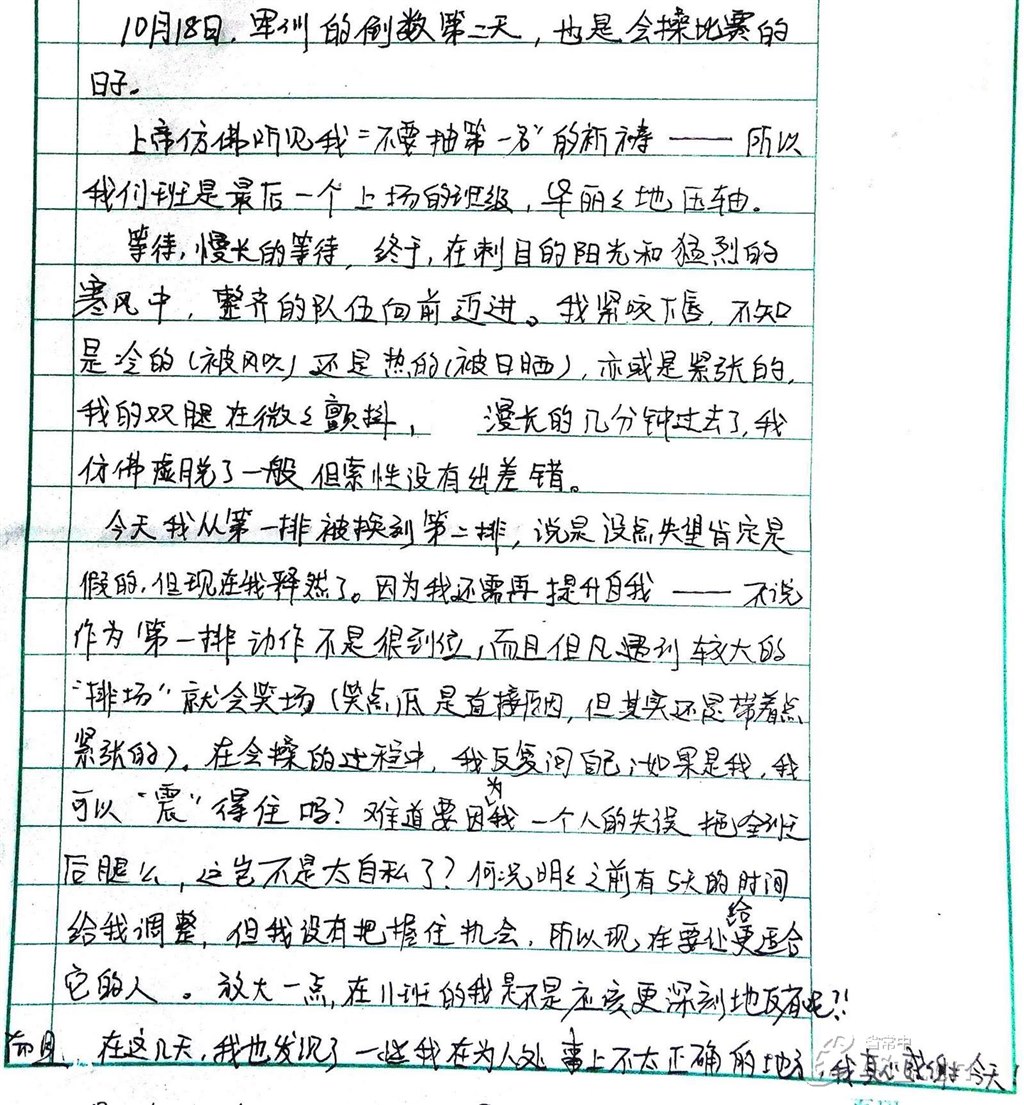 10月18日，军训的倒数第二天，也是会操比赛的
日子。
上帝仿佛听见我“不要抽第一名”的祈祷——所以
我们班是最后一个上场的班级，华丽々地压轴。
等待，慢长的等待，终于，在刺目的阳光和猛烈的
寒风中，整齐的队伍向前迈进。我紧咬下唇，不知
是冷的（被风吹）还是热的（被日晒），亦或是紧张的，
我的双腿在微々颤抖， 漫长的几分钟过去了，我
仿佛虚脱了一般但索性没有出差错。
今天我从第一排被换到第二排，说是没点失望肯定是
假的，但现在我释然了。因为我还需再提升自我——不说
作为第一排动作不是很到位，而且但凡遇到较大的
“排场”就会笑场（笑点低是直接原因，但其实还是带着点
紧张的）。在会操的过程中，我反复问自己；如果是我，我
可以“震”得住吗？难道要因为我一个人的失误拖全班
后腿么，这岂不是太自私了？何况明々之前有5天的时间
给我调整，但我没有把握住机会，所以现在要让给更适合
它的人。放大一点，在11班的我是不是应该更深刻地反省呢?!
而且，在这几天，我也发现了一些我在为人处事上不太正确的地方，我真心感谢今天！
省常中